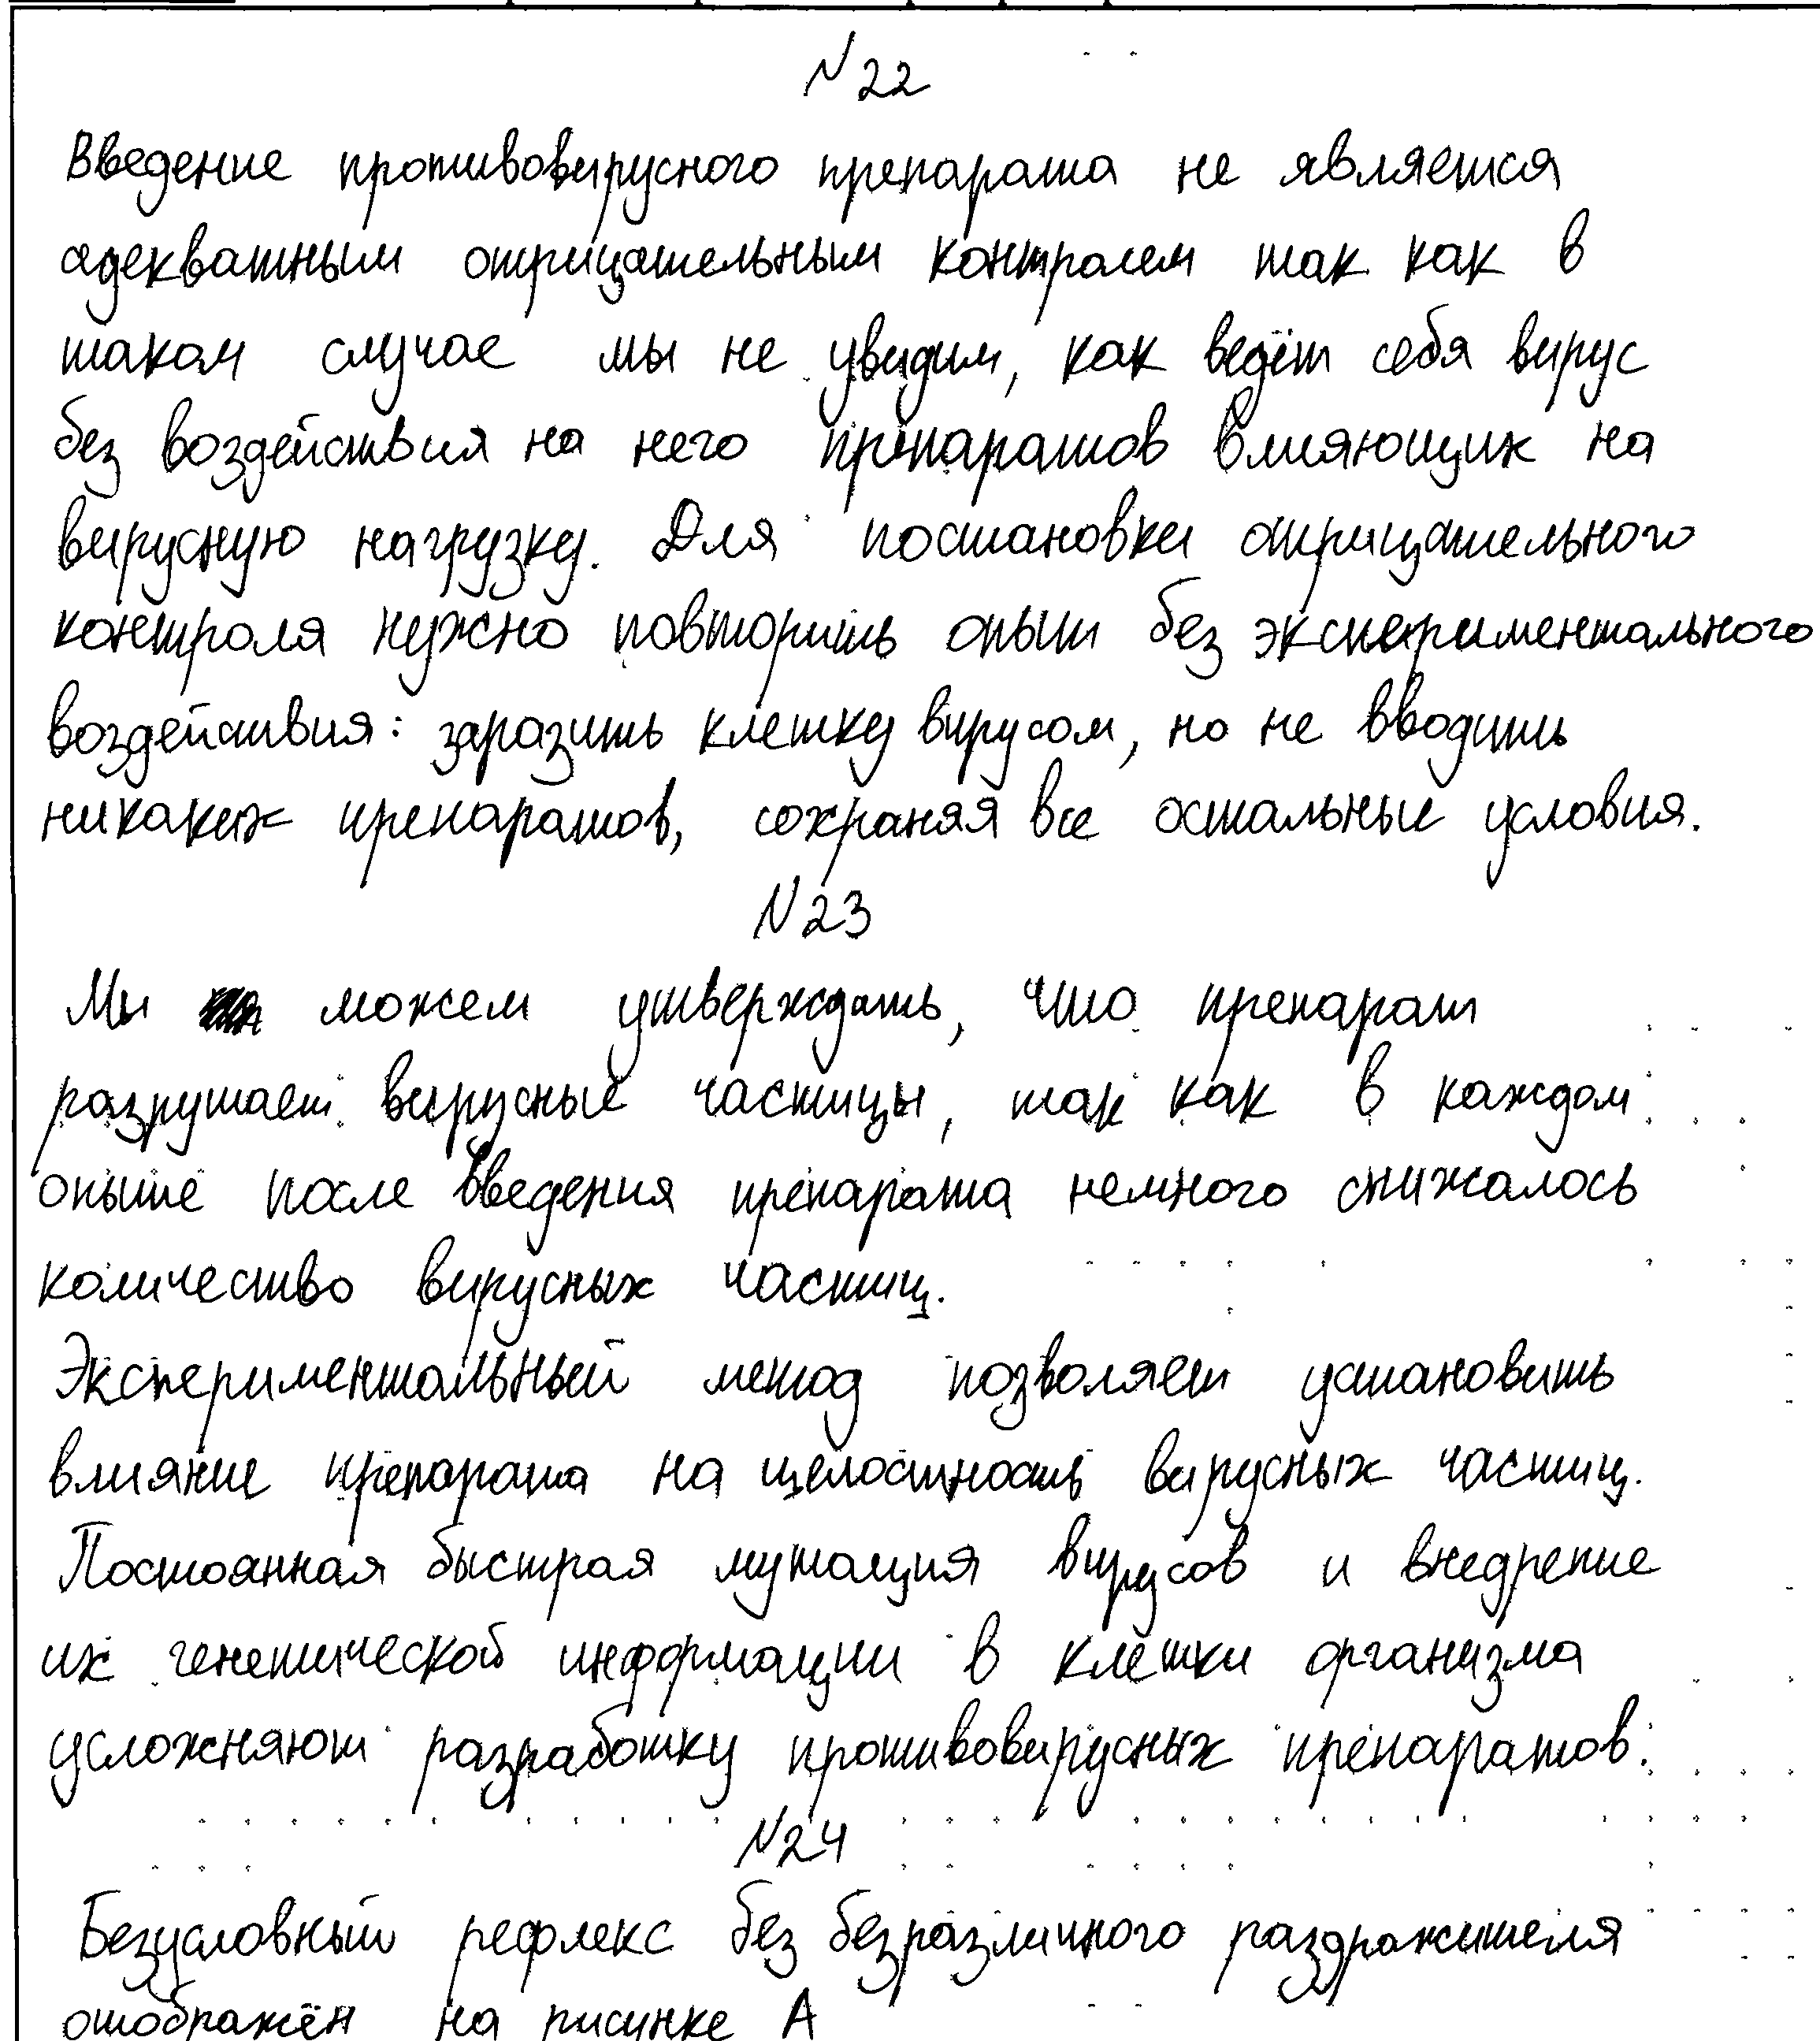 №22
Введение противовирусного препарата не является
адекватным отрицательным контролем так как в
таком случае мы не увидим, как ведёт себя вирус
без воздействия на него препаратов влияющих на
вирусную нагрузку. Для постановки отрицательного
контроля нужно повторить опыт без экспериментального
воздействия: заразить клетку вирусом, но не вводить
никаких препаратов, сохраняя все остальные условия.
№23
Мы можем утверждать, что препарат
разрушает вирусные частицы, так как в каждом
опыте после введения препарата немного снижалось
количество вирусных частиц.
Экспериментальный метод позволяет установить
влияние препарата на целостность вирусных частиц.
Постоянная быстрая мутация вирусов и внедрение
их генетической информации в клетки организма
усложняют разработку противовирусных препаратов.
№24
Безусловный рефлекс без безразличного раздражителя
отображён на рисунке А